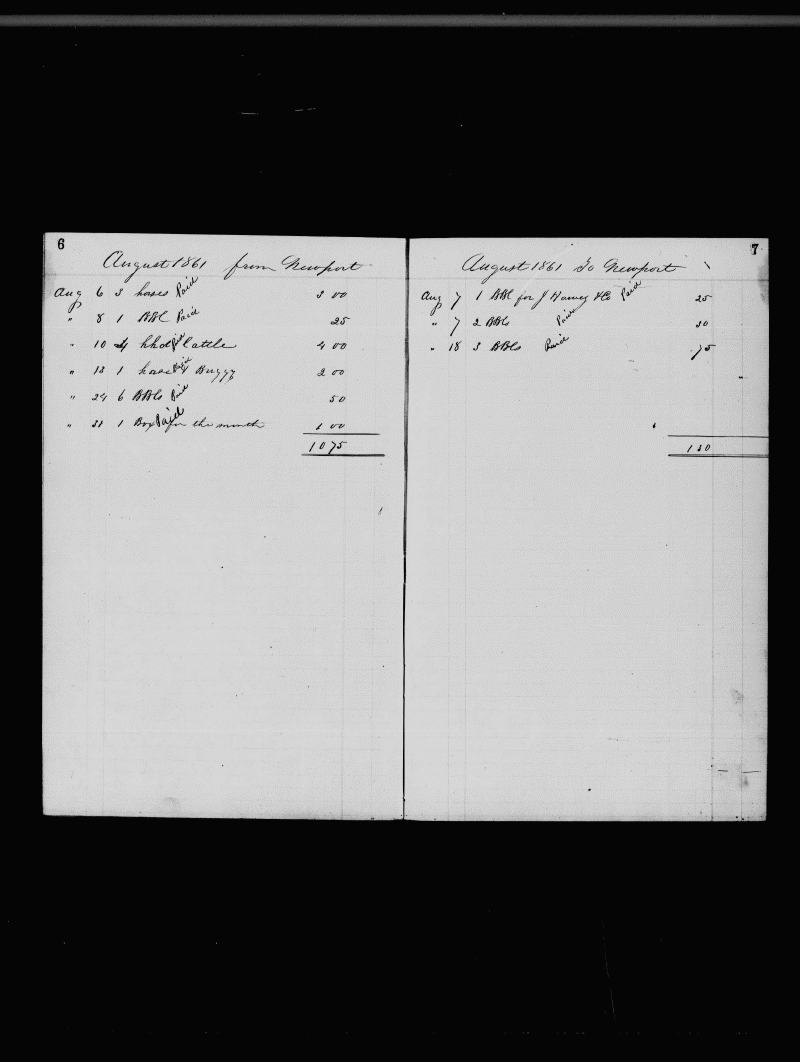 6
August 1861 from Newport
Aug 6 3 hoses Paid 3 00
" 8 1 BBL Paid 25
" 10 4 hhd Paid Cattle 4 00
" 13 1 hose Paid & Buggy 2 00
" 24 6 BBls Paid 50
" 31 1 Box Paid for the month 1 00
10 75
7
August 1861 To Newport
Aug 7 1 BBl for J &Co Paid 25
" 7 2 BBls Paid 30
" 18 3 BBls Paid 75
1 30